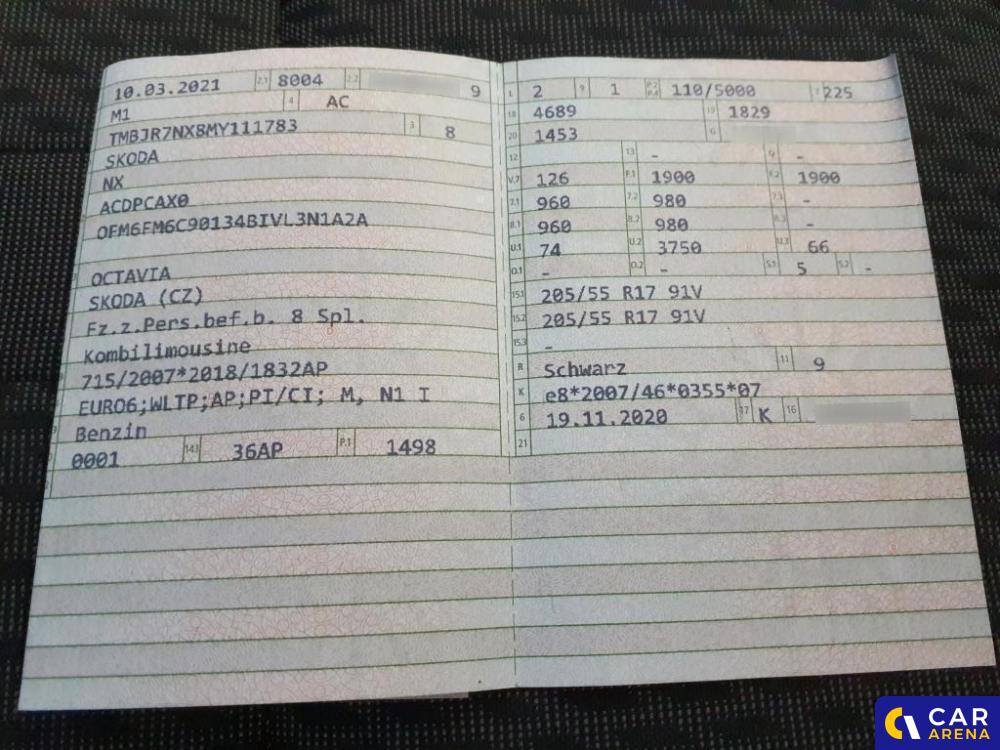 10.03.2021 2.1 8004 2.2 9
M1 4 AC
TMBJR7NX8MY111783 3 8
SKODA
NX
ACDPCAX0
OFM6FM6C90134BIVL3N1A2A
OCTAVIA
SKODA (CZ)
Fz.z.Pers.bef.b. 8 Spl.
Kombilimousine
715/2007*2018/1832AP
EURO6;WLTP;AP;PI/CI; M, N1 I
Benzin
0001 14.1 36AP P.1 1498
L 2 9 1 P.2 P.4 110/5000 T 225
18 4689 19 1829
20 1453 G
12 13 - Q -
V.7 126 F.1 1900 F.2 1900
7.1 960 7.2 980 7.3 -
8.1 960 8.2 980 8.3 -
U.1 74 U.2 3750 U.3 66
O.1 - O.2 - S.1 5 S.2 -
15.1 205/55 R17 91V
15.2 205/55 R17 91V
15.3 -
R Schwarz 11 9
K e8*2007/46*0355*07
6 19.11.2020 17 K 16
21
CAR
ARENA